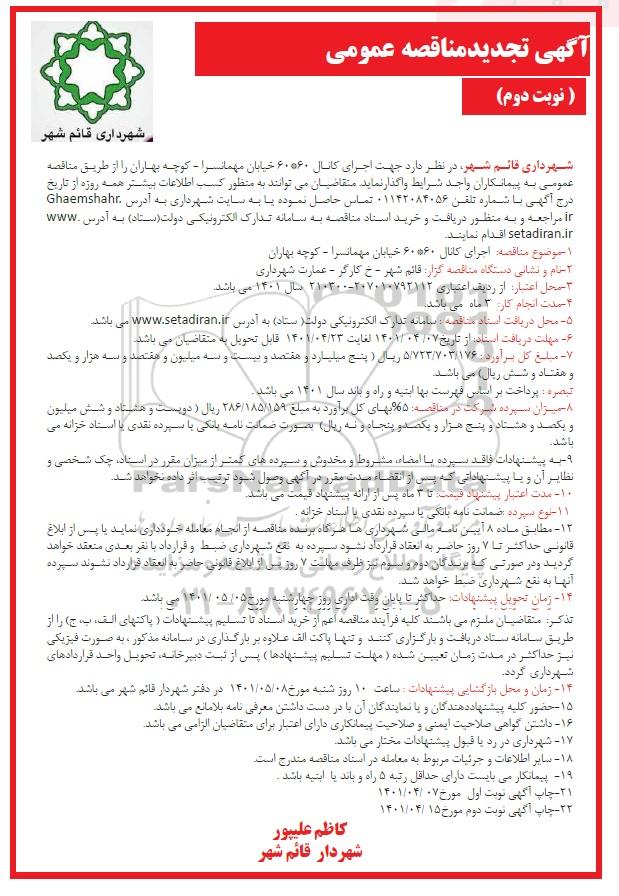 آگهی تجدیدمناقصه عمومی
( نوبت دوم)
شهرداری قائم شهر
شهرداری قائم شهر، در نظر دارد جهت اجرای کانال ۶۰*۶۰ خیابان مهمانسرا - کوچه بهاران را از طریق مناقصه
عمومی به پیمانکاران واجد شرایط واگذارنماید. متقاضیان می توانند به منظور کسب اطلاعات بیشتر همه روزه از تاریخ
درج آگهی با شماره تلفن ۰۱۱۴۲۰۸۴۰۵۶ تماس حاصل نموده یا به سایت شهرداری به آدرس Ghaemshahr.
ir مراجعه و به منظور دریافت و خرید اسناد مناقصه به سامانه تدارک الکترونیکی دولت(ستاد) به آدرس www.
setadiran.ir اقدام نمایند.
۱-موضوع مناقصه: اجرای کانال ۶۰*۶۰ خیابان مهمانسرا - کوچه بهاران
۲-نام و نشانی دستگاه مناقصه گزار: قائم شهر - خ کارگر - عمارت شهرداری
۳-محل اعتبار: از ردیف اعتباری ۲۰۷۰۱۰۷۹۲۱۱۲-۲۱۰۳۰۰ سال ۱۴۰۱ می باشد.
۴-مدت انجام کار: ۳ ماه می باشد.
۵- محل دریافت اسناد مناقصه : سامانه تدارک الکترونیکی دولت( ستاد) به آدرس www.setadiran.ir می باشد.
۶- مهلت دریافت اسناد: از تاریخ۰۷/ ۰۴/ ۱۴۰۱ لغایت ۱۴۰۱/۰۴/۲۳ قابل تحویل به متقاضیان می باشد.
۷- مبلغ کل برآورد : ۵/۷۲۳/۷۰۳/۱۷۶ ریال ( پنج میلیارد و هفتصد و بیست و سه میلیون و هفتصد و سه هزار و یکصد
و هفتاد و شش ریال) می باشد.
تبصره : پرداخت بر اساس فهرست بها ابنیه و راه و باند سال ۱۴۰۱ می باشد .
۸-میزان سپرده شرکت در مناقصه: ۵%بهای کل برآورد به مبلغ ۲۸۶/۱۸۵/۱۵۹ ریال ( دویست و هشتاد و شش میلیون
و یکصد و هشتاد و پنج هزار و یکصدو پنجاه و نه ریال) بصورت ضمانت نامه بانکی یا سپرده نقدی یا اسناد خزانه می
باشد.
۹-به پیشنهادات فاقد سپرده یا امضاء، مشروط و مخدوش و سپرده های کمتر از میزان مقرر در اسناد، چک شخصی و
نظایر آن و یا پیشنهاداتی که پس از انقضاء مدت مقرر در آگهی وصول شود ترتیب اثر داده نخواهد شد.
۱۰- مدت اعتبار پیشنهاد قیمت: تا ۳ ماه پس از ارائه پیشنهاد قیمت می باشد.
۱۱-نوع سپرده :ضمانت نامه بانکی یا سپرده نقدی یا اسناد خزانه .
۱۲- مطابق ماده ۸ آیین نامه مالی شهرداری ها هر گاه برنده مناقصه از انجام معامله خودداری نماید یا پس از ابلاغ
قانونی حداکثر تا ۷ روز حاضر به انعقاد قرارداد نشود سپرده به نفع شهرداری ضبط و قرارداد با نفر بعدی منعقد خواهد
گردید ودر صورتی که برندگان دوم و سوم نیز ظرف مهلت ۷ روز پس از ابلاغ قانونی حاضر به انعقاد قرارداد نشوند سپرده
آنها به نفع شهرداری ضبط خواهد شد.
۱۴- زمان تحویل پیشنهادات: حداکثر تا پایان وقت اداری روز چهارشنبه مورخ۰۵/ ۰۵/ ۱۴۰۱ می باشد.
تذکر: متقاضیان ملزم می باشند کلیه فرآیند مناقصه اعم از خرید اسناد تا تسلیم پیشنهادات ( پاکتهای الف، ب، ج) را از
طریق سامانه ستاد دریافت و بارگزاری کنند و تنها پاکت الف علاوه بر بارگذاری در سامانه مذکور ، به صورت فیزیکی
نیز حداکثر در مدت زمان تعیین شده ( مهلت تسلیم پیشنهادها ) پس از ثبت دبیرخانه، تحویل واحد قراردادهای
شهرداری گردد.
۱۴- زمان و محل بازگشایی پیشنهادات : ساعت ۱۰ روز شنبه مورخ۱۴۰۱/۰۵/۰۸ در دفتر شهردار قائم شهر می باشد.
۱۵-حضور کلیه پیشنهاددهندگان و یا نمایندگان آن با در دست داشتن معرفی نامه بلامانع می باشد.
۱۶- داشتن گواهی صلاحیت ایمنی و صلاحیت پیمانکاری دارای اعتبار برای متقاضیان الزامی می باشد.
۱۷- شهرداری در رد یا قبول پیشنهادات مختار می باشد.
۱۸- سایر اطلاعات و جزئیات مربوط به معامله در اسناد مناقصه مندرج است.
۱۹- پیمانکار می بایست دارای حداقل رتبه ۵ راه و باند یا ابنیه باشد .
۲۱-چاپ آگهی نوبت اول مورخ۰۷ /۱۴۰۱/۰۴
۲۲-چاپ آگهی نوبت دوم مورخ۱۵ /۱۴۰۱/۰۴
کاظم علیپور
شهردار قائم شهر